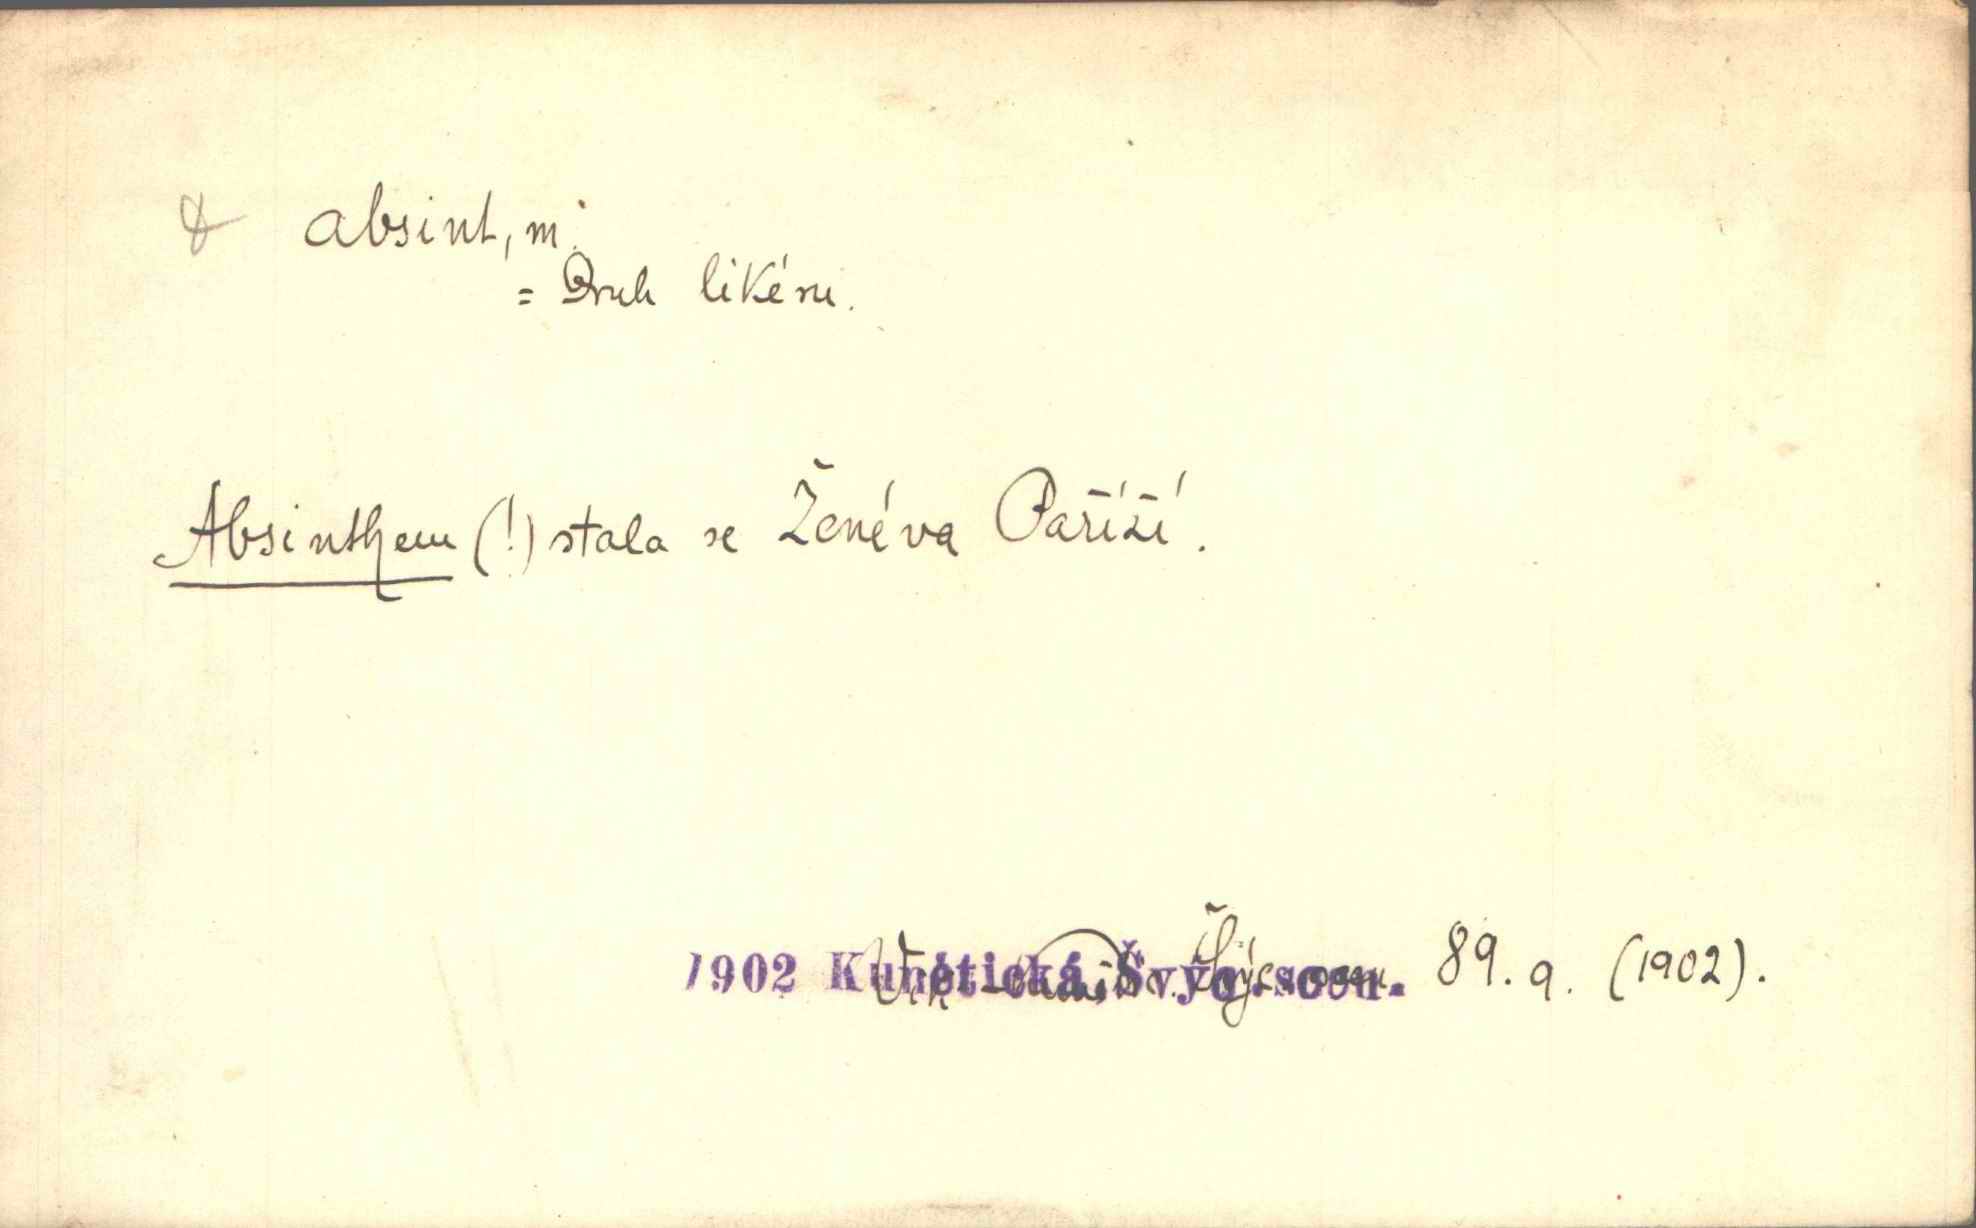 absint, m.
= Druh likéru.
Absinthem (!) stala se Ženéva Paříží.
1902 Kunětická, Švýc. scen. 89. 9. (1902).